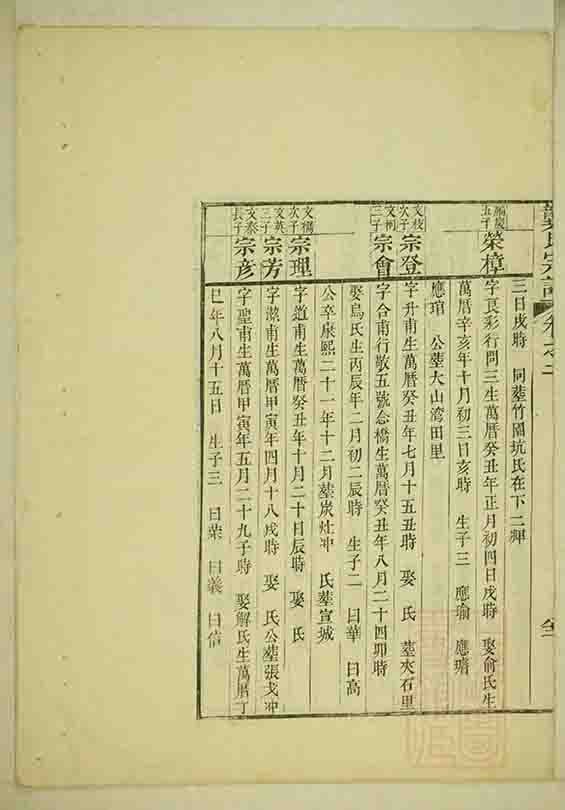 氏宗譜 卷之二
三日戌時 同墓竹園坑氏在下二墠
榮樟 字良彩行問三生萬曆癸丑年正月初四日戌時 娶俞氏生
萬曆辛亥年十月初三日亥時 生子三 應瑜 應瑨
應琯 公墓大山湾田里
文枝次子 宗登 字升甫生萬曆癸丑年七月十五丑時 娶 氏 墓夾石里
三子 宗會 字合甫行敬五號念橋生萬曆癸丑年八月二十四卯時
娶烏氏生丙辰年二月初二辰時 生子二 曰華 曰高
公卒康熙二十一年十二月墓炭灶冲 氏墓宣城
次子 宗理 字道甫生萬曆癸丑年十月二十日辰時 娶 氏
文英三子 宗芳 字 甫生萬曆甲寅年四月十八戌時 娶 氏公墓張戈冲
文泰長子 宗彦 字聖甫生萬曆甲寅年五月二十九子時 娶解氏生萬曆丁
巳年八月十五日 生子三 曰榮 曰義 曰信